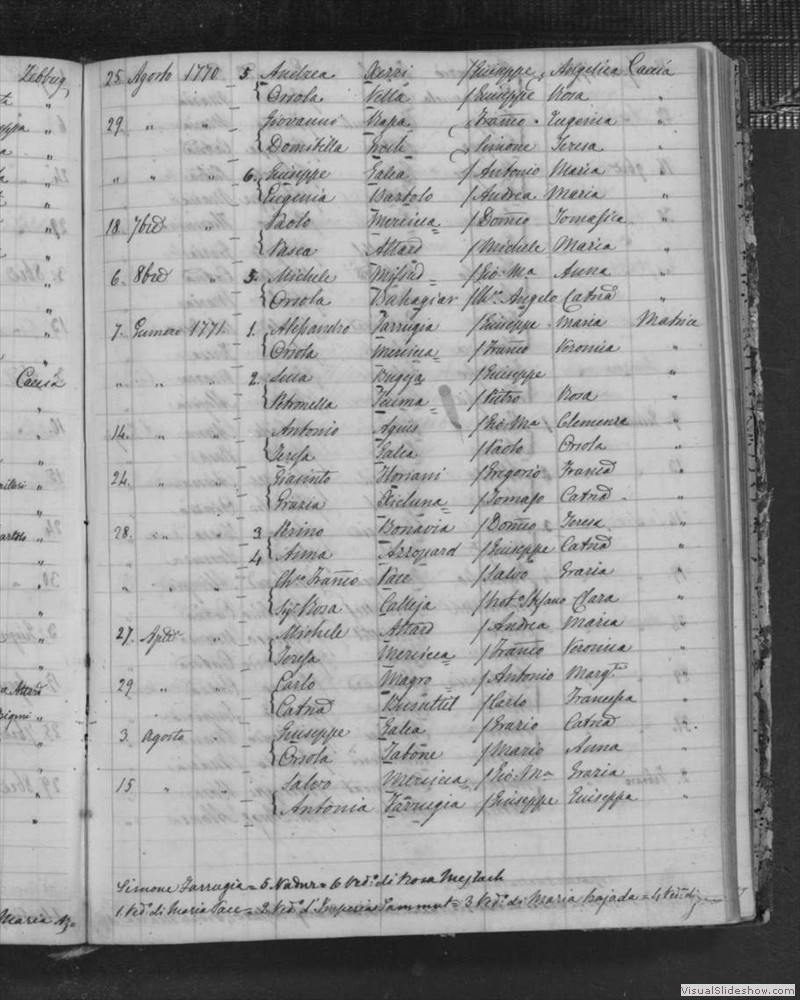 Zebbug
25. Agosto 1770 5. Andrea Xerri f Giuseppe Angelica Caccia
Orsola Vella f Giuseppe Rosa "
29. " " Giovanni Napa Franco Eugenia "
Domitilla Simone Teresa "
" " " 6. Giuseppe Galea f Antonio Maria "
Eugenia Bartolo f Andrea Maria "
18. 7bre " Paolo Mercieca f Domco Tomasica "
Pasca Attard f Michele Maria "
6. 8bre " 5. Michele Mifsud = f Gio Ma Anna "
Orsola Buhagiar f Angelo Catna "
7. Gennaro 1771. 1. Alessandro Farrugia f Giuseppe Maria Matrice
Orsola Mercieca = f Franco Veronica "
Caccia " " " 2. Luca Bugeja f Giuseppe "
Petronella Teuma = f Pietro Rosa "
14. " " Antonio Agius f Gio Ma Clemenza "
Teresa Galea f Paolo Orsola "
24. " " Giacinto Floriani f Gregorio Franca "
Grazia Xicluna = f Tomaso Catna "
28. " " 3 Pirino Bonavia f Domco Teresa "
4 Anna Azzopard f Giuseppe Catna "
" " " Franco Pace f Salvo Grazia "
Sigra Rosa Calleja f Not. Stefano Clara "
27. Aple " Michele Attard f Andrea Maria "
Teresa Mercieca = f Franco Veronica "
29. " " Carlo Magro = f Antonio Margta "
Catna Busuttil f Carlo Francesca "
3. Agosto " Giuseppe Galea f Grazio Catna "
Orsola Tabone f Mario Anna "
15. " " Salvo Mercieca f Gio Ma Grazia "
Antonia Farrugia f Giuseppe Giuseppa "
Simone Farrugia = 5. Nadur = 6 Vedo. di Rosa Mejlach
Maria
1. Vedo. di Maria Pace = 2. Vedo. d'Imperia Sammut = 3 Vedo. di Maria = 4. Vedo. di
VisualSlideshow.com